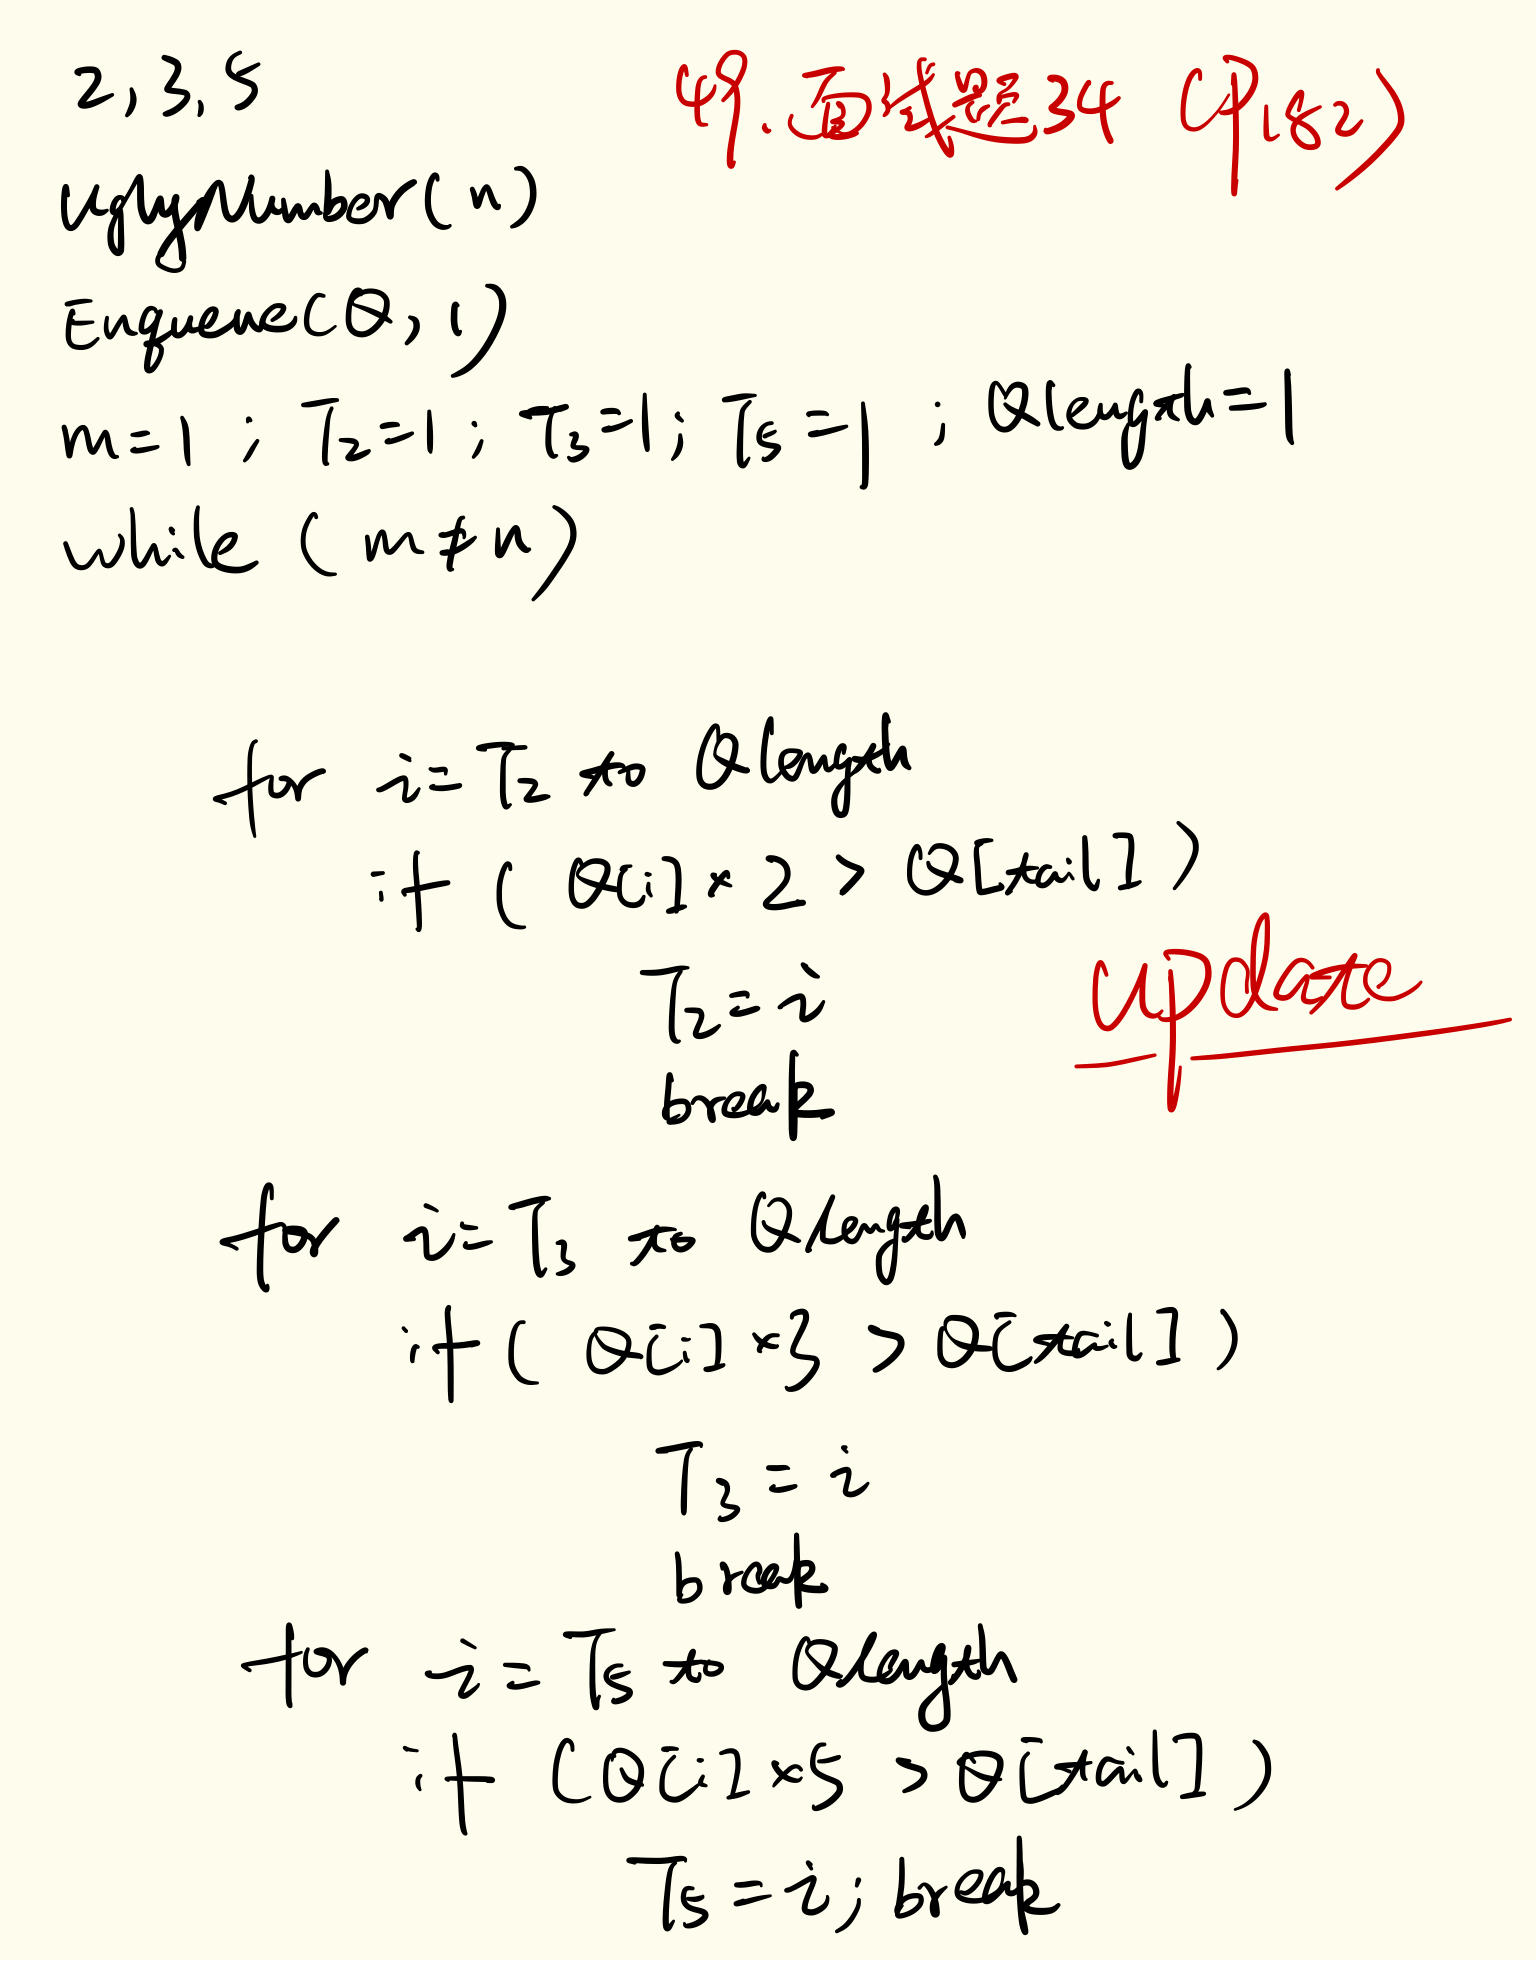 2,3,5
49.面试题34 (P182)
UglyNumber(n)
Enqueue(Q,1)
m=1 ; T2=1 ; T3=1; T5=1 ; Qlength=1
while (m≠n)
for i=T2 to Qlength
if ( Q[i] × 2 > Q[tail] )
T2=i
update
break
for i=T3 to Qlength
if ( Q[i] ×3 > Q[tail] )
T3 = i
break
for i=T5 to Qlength
if (Q[i] ×5 > Q[tail] )
T5 = i; break